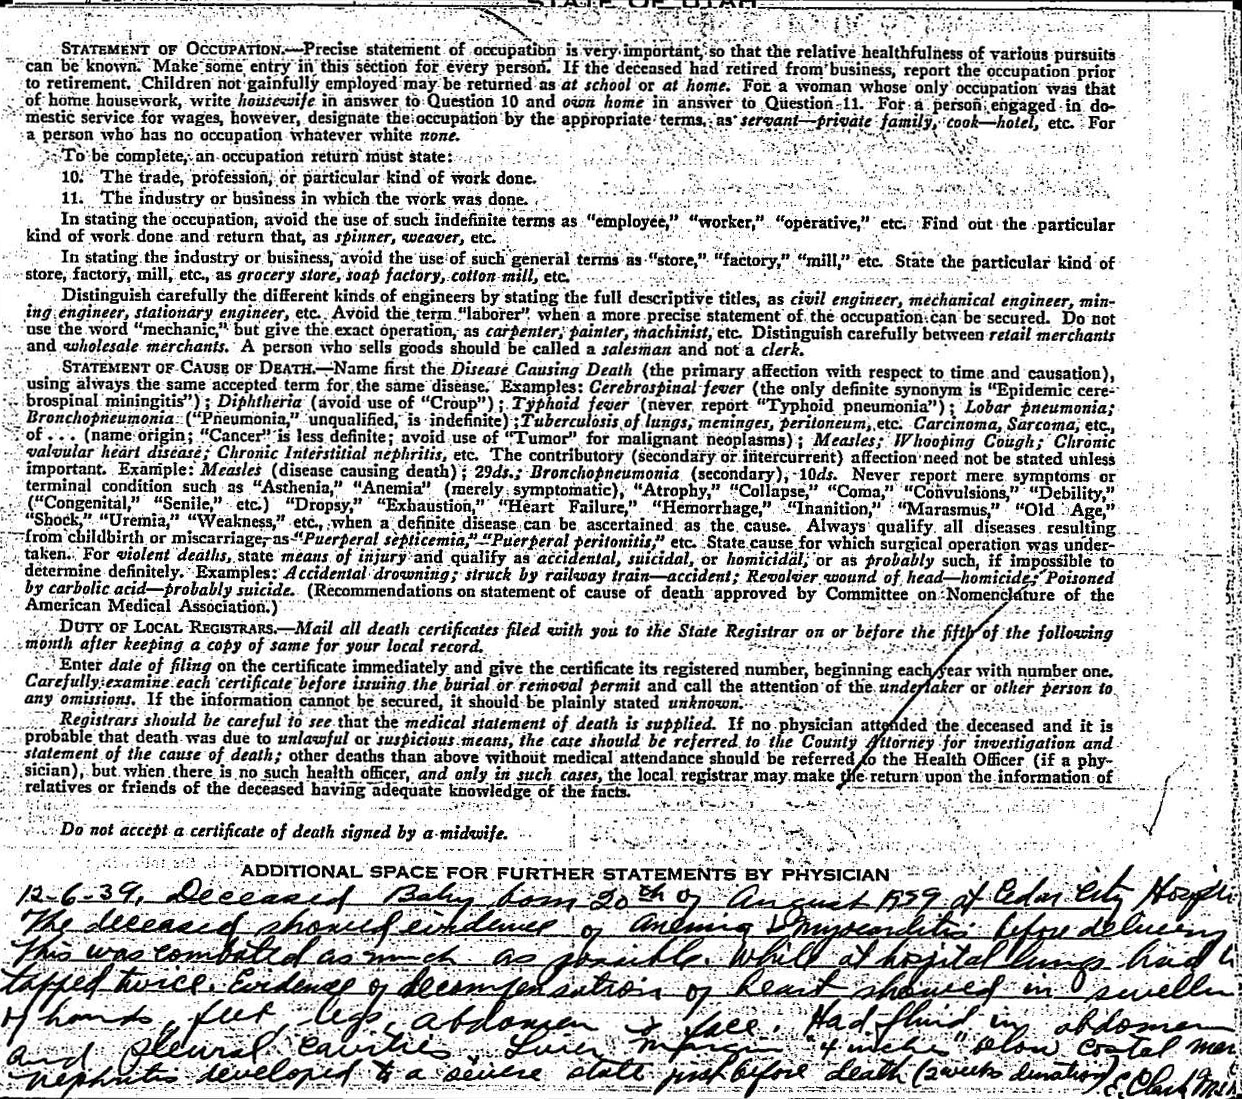 STATE OF UTAH
STATEMENT OF OCCUPATION.—Precise statement of occupation is very important, so that the relative healthfulness of various pursuits
can be known. Make some entry in this section for every person. If the deceased had retired from business, report the occupation prior
to retirement. Children not gainfully employed may be returned as at school or at home. For a woman whose only occupation was that
of home housework, write housewife in answer to Question 10 and own home in answer to Question 11. For a person engaged in do-
mestic service for wages, however, designate the occupation by the appropriate terms, as servant—private family, cook—hotel, etc. For
a person who has no occupation whatever white none.
To be complete, an occupation return must state:
10. The trade, profession, or particular kind of work done.
11. The industry or business in which the work was done.
In stating the occupation, avoid the use of such indefinite terms as "employee," "worker," "operative," etc. Find out the particular
kind of work done and return that, as spinner, weaver, etc.
In stating the industry or business, avoid the use of such general terms as "store," "factory," "mill," etc. State the particular kind of
store, factory, mill, etc., as grocery store, soap factory, cotton mill, etc.
Distinguish carefully the different kinds of engineers by stating the full descriptive titles, as civil engineer, mechanical engineer, min-
ing engineer, stationary engineer, etc. Avoid the term "laborer" when a more precise statement of the occupation can be secured. Do not
use the word "mechanic" but give the exact operation, as carpenter, painter, machinist, etc. Distinguish carefully between retail merchants
and wholesale merchants. A person who sells goods should be called a salesman and not a clerk.
STATEMENT OF CAUSE OF DEATH.—Name first the Disease Causing Death (the primary affection with respect to time and causation),
using always the same accepted term for the same disease. Examples: Cerebrospinal fever (the only definite synonym is "Epidemic cere-
brospinal miningitis"); Diphtheria (avoid use of "Croup"); Typhoid fever (never report "Typhoid pneumonia"); Lobar pneumonia;
Bronchopneumonia ("Pneumonia," unqualified, is indefinite); Tuberculosis of lungs, meninges, peritoneum, etc. Carcinoma, Sarcoma, etc.,
of . . . (name origin; "Cancer" is less definite; avoid use of "Tumor" for malignant neoplasms); Measles; Whooping Cough; Chronic
valvular heart disease; Chronic Interstitial nephritis, etc. The contributory (secondary or intercurrent) affection need not be stated unless
important. Example: Measles (disease causing death); 29ds.; Bronchopneumonia (secondary), 10ds. Never report mere symptoms or
terminal condition such as "Asthenia," "Anemia" (merely symptomatic), "Atrophy," "Collapse," "Coma," "Convulsions," "Debility,"
("Congenital," "Senile," etc.) "Dropsy," "Exhaustion," "Heart Failure," "Hemorrhage," "Inanition," "Marasmus," "Old Age,"
"Shock," "Uremia," "Weakness," etc., when a definite disease can be ascertained as the cause. Always qualify all diseases resulting
from childbirth or miscarriage, as "Puerperal septicemia," "Puerperal peritonitis," etc. State cause for which surgical operation was under-
taken. For violent deaths, state means of injury and qualify as accidental, suicidal, or homicidal, or as probably such, if impossible to
determine definitely. Examples: Accidental drowning; struck by railway train—accident; Revolver wound of head—homicide; Poisoned
by carbolic acid—probably suicide. (Recommendations on statement of cause of death approved by Committee on Nomenclature of the
American Medical Association.)
DUTY OF LOCAL REGISTRARS.—Mail all death certificates filed with you to the State Registrar on or before the fifth of the following
month after keeping a copy of same for your local record.
Enter date of filing on the certificate immediately and give the certificate its registered number, beginning each year with number one.
Carefully examine each certificate before issuing the burial or removal permit and call the attention of the undertaker or other person to
any omissions. If the information cannot be secured, it should be plainly stated unknown.
Registrars should be careful to see that the medical statement of death is supplied. If no physician attended the deceased and it is
probable that death was due to unlawful or suspicious means, the case should be referred to the County Attorney for investigation and
statement of the cause of death; other deaths than above without medical attendance should be referred to the Health Officer (if a phy-
sician), but when there is no such health officer, and only in such cases, the local registrar may make the return upon the information of
relatives or friends of the deceased having adequate knowledge of the facts.
Do not accept a certificate of death signed by a midwife.
ADDITIONAL SPACE FOR FURTHER STATEMENTS BY PHYSICIAN
12-6-39. Deceased Baby born 20th of August 1939 at Cedar City
The deceased showed evidence of anemia & myocarditis before delivery
This was combated as much as possible. While at hospital lungs had
tapped twice. Evidence of decompensation of heart showed in
of hands, feet, legs, abdomen & face. Had fluid in abdomen
and pleural cavities. Liver margin "4 inches" below costal
nephritis developed to a severe state just before death (2 weeks duration) E. Clark M.D.